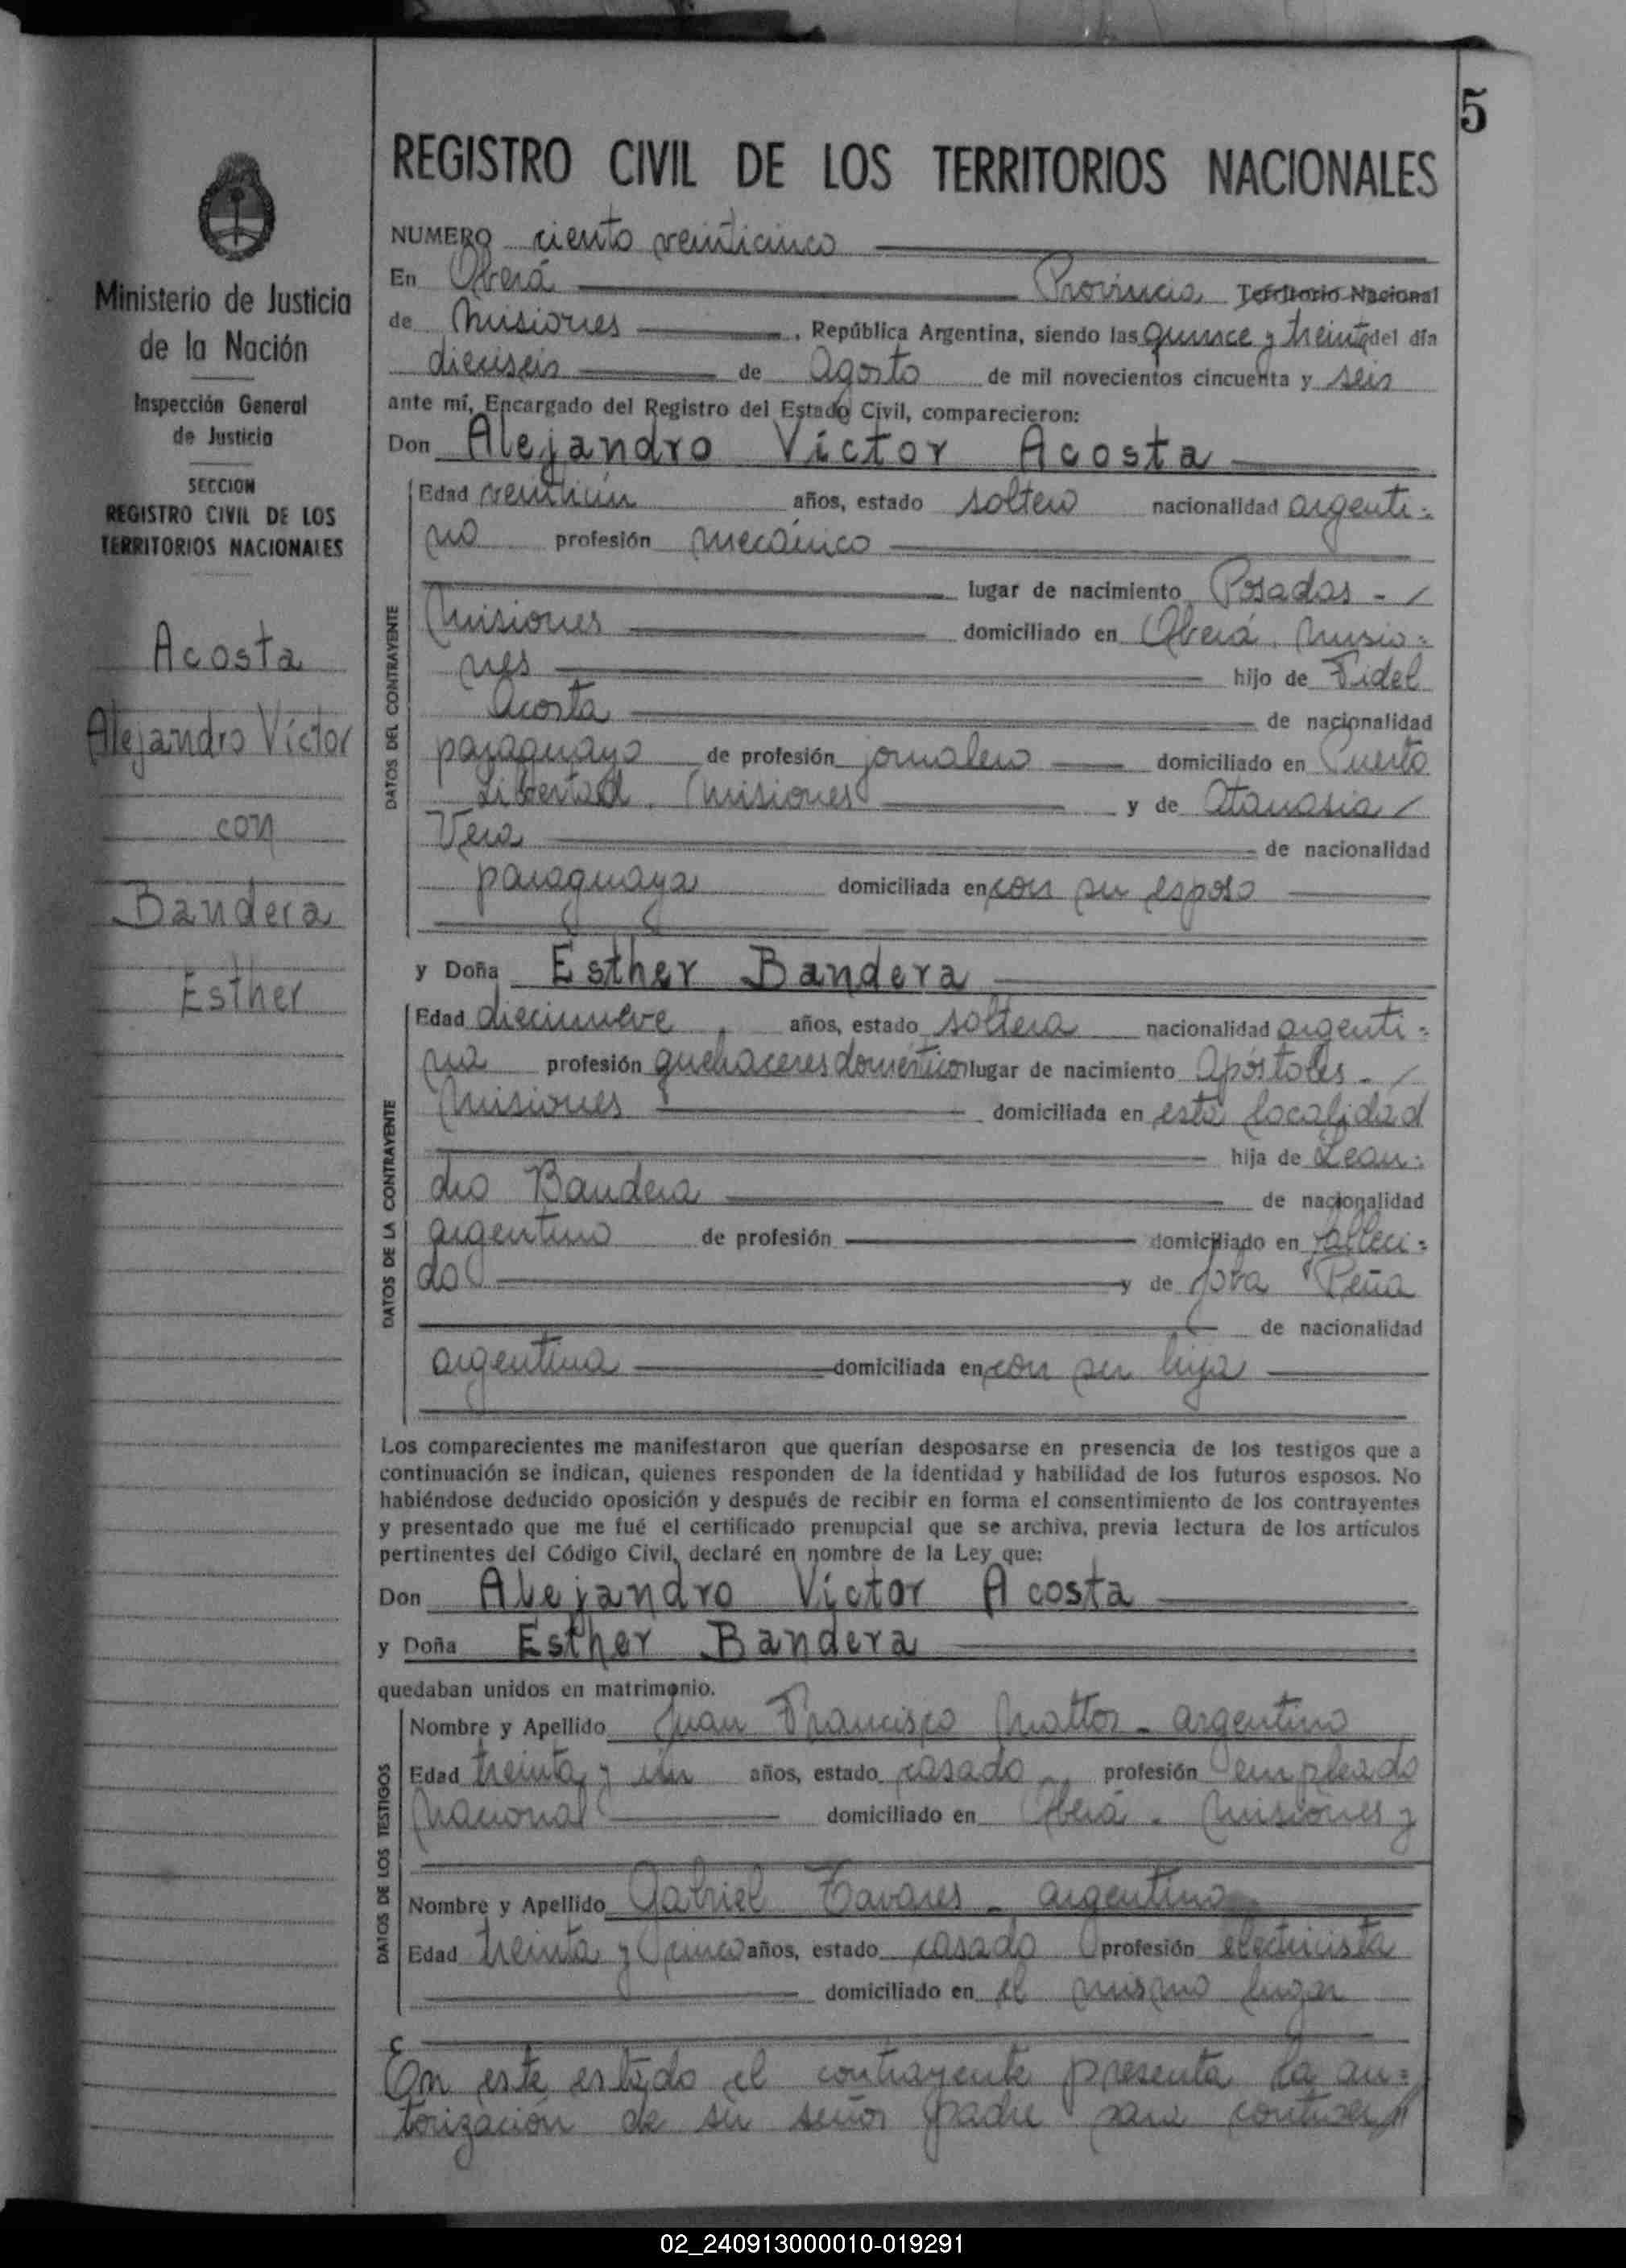 5
REGISTRO CIVIL DE LOS TERRITORIOS NACIONALES
Ministerio de Justicia
de la Nación
Inspección General
de Justicia
SECCION
REGISTRO CIVIL DE LOS
TERRITORIOS NACIONALES
Acosta
Alejandro Víctor
con
Bandera
Esther
NUMERO ciento veinticinco
En Oberá Provincia Territorio Nacional
de Misiones , República Argentina, siendo las quince y treinta del día
dieciseis de Agosto de mil novecientos cincuenta y seis
ante mí, Encargado del Registro del Estado Civil, comparecieron:
Don Alejandro Víctor Acosta
DATOS DEL CONTRAYENTE
Edad veintiún años, estado soltero nacionalidad argenti-
no profesión mecánico
lugar de nacimiento Posadas -
Misiones domiciliado en Oberá. Misio-
nes hijo de Fidel
Acosta de nacionalidad
paraguayo de profesión jornalero domiciliado en Puerto
Libertad. Misiones y de Atanasia
Vera de nacionalidad
paraguaya domiciliada en con su esposo
y Doña Esther Bandera
DATOS DE LA CONTRAYENTE
Edad diecinueve años, estado soltera nacionalidad argenti-
na profesión quehaceres domésticos lugar de nacimiento Apóstoles -
Misiones domiciliada en esta localidad
hija de Lean-
dro Bandera de nacionalidad
argentino de profesión domiciliado en falleci-
do y de Jova Peña
de nacionalidad
argentina domiciliada en con su hija
Los comparecientes me manifestaron que querían desposarse en presencia de los testigos que a
continuación se indican, quienes responden de la identidad y habilidad de los futuros esposos. No
habiéndose deducido oposición y después de recibir en forma el consentimiento de los contrayentes
y presentado que me fué el certificado prenupcial que se archiva, previa lectura de los artículos
pertinentes del Código Civil, declaré en nombre de la Ley que:
Don Alejandro Víctor Acosta
y Doña Esther Bandera
quedaban unidos en matrimonio.
DATOS DE LOS TESTIGOS
Nombre y Apellido Juan Francisco Mattos - argentino
Edad treinta y un años, estado casado profesión empleado
nacional domiciliado en Oberá - Misiones y
Nombre y Apellido Gabriel Tavares - argentino
Edad treinta y cinco años, estado casado profesión electricista
domiciliado en el mismo lugar
En este estado el contrayente presenta la au-
torización de su señor padre para contraer
02_240913000010-019291